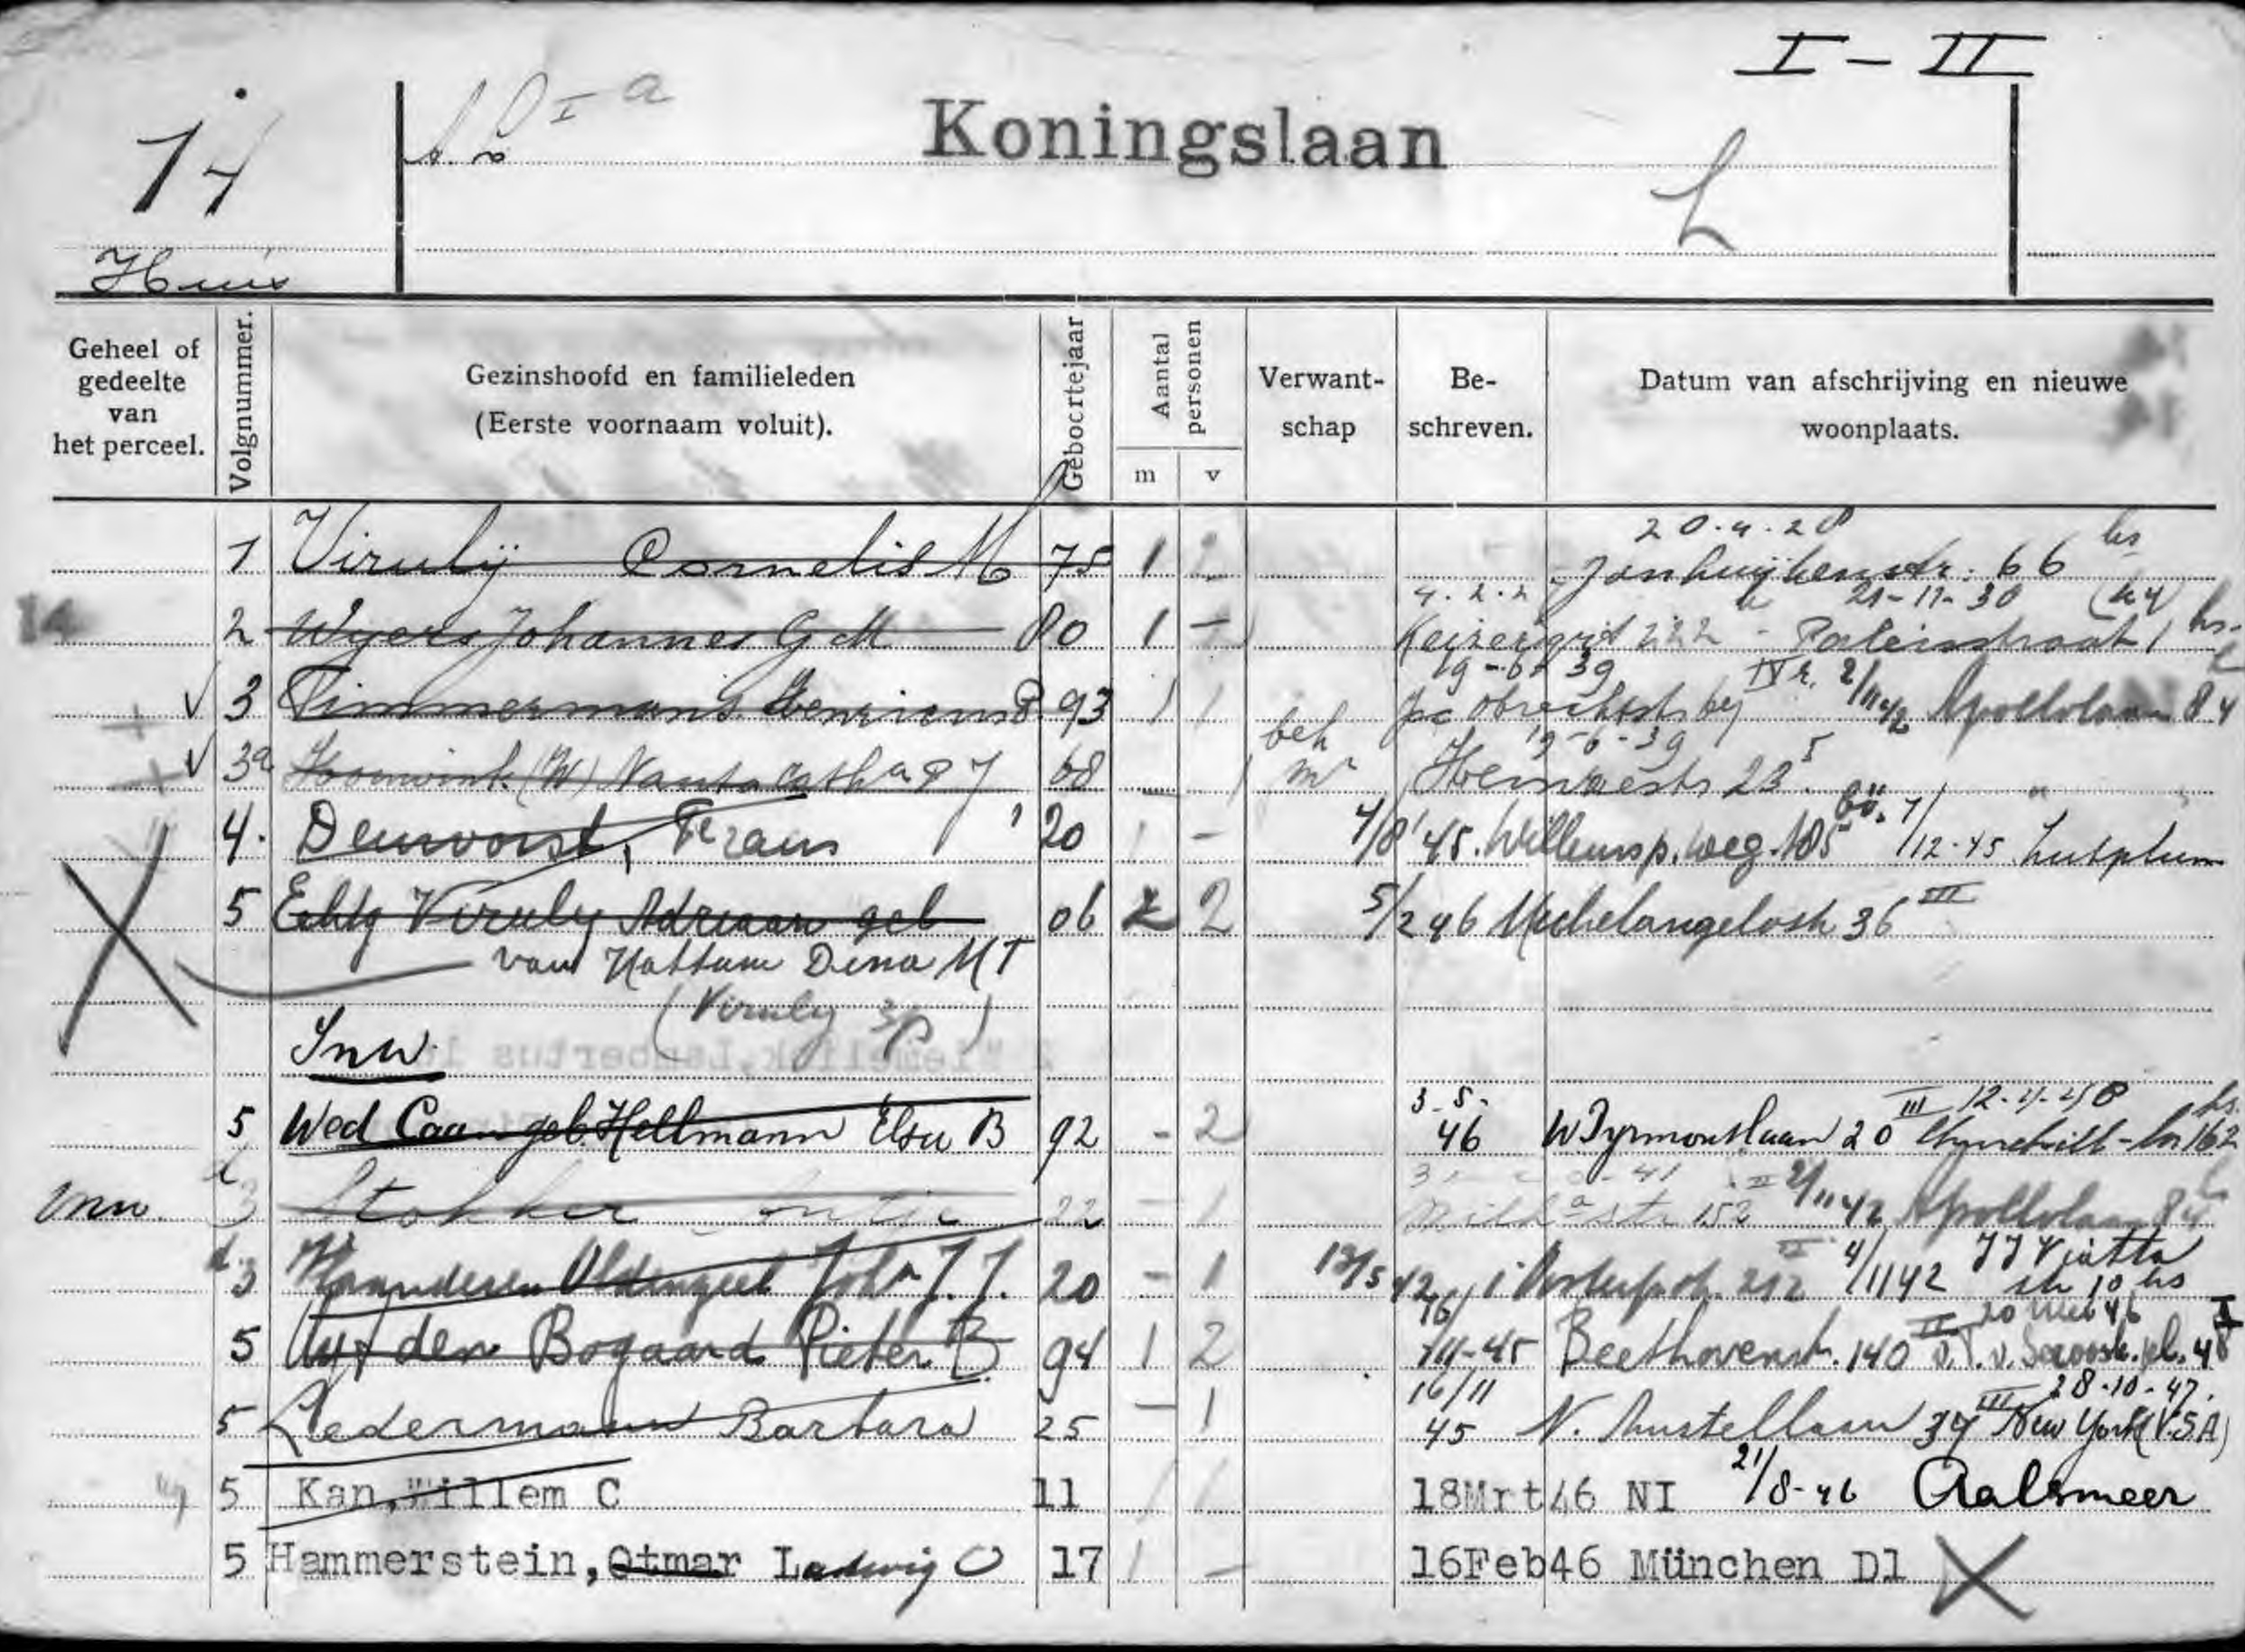 I - II
14
A.
I a
Koningslaan
L
Huis
Geheel of gedeelte van het perceel.
Volgnummer.
Gezinshoofd en familieleden
(Eerste voornaam voluit).
Geboortejaar
Aantal personen
m v
Verwantschap
Beschreven.
Datum van afschrijving en nieuwe woonplaats.
20.4.28 hs
1 Virulij Cornelis M 75 1 2 Jan Luijkenstr. 66
4.2.2 21-11-30
14 2 Wyers Johannes G M 80 1 - Keizersgrt 222 - Paleisstraat 1 hs.
19-6-39
3 Timmermans Henricus P. 93 1 1 Jac Obrechtstr bij IV r. 2/11 42 Apollolaan 84
beh 19-6-39
3a (W) Nanta Catha P J 68 - 1 23
4. Deurvorst, Frans '20 1 - 7/8 '45. Willemsp.weg. 185 7/12-45 Zutphen
5 Echtg Viruly Adriaan geb 06 2 5/2 46 Michelangelostr 36 III
van Hattum Dina M T
(Viruly sp)
Inw.
3-5- III 12-4-48 hs.
5 Wed Caan geb. Hellmann Elsa B 92 - 2 46 W Pyrmontlaan 20 Churchill-ln 162
inw. 3 Stokker Antje 22 - 1 152 2/11 42 Apollolaan 84
d.3 Oldenzeel Joha J. J. 20 - 1 13/5 42 212 4/11 42 J J Viotta
str 10 hs
16/ II 20 Mei 46 I
5 den Bogaard Pieter B 94 1 2 10-45 Beethovenstr. 140 v.T.v. Seroosk. pl. 48
16/11 III 28-10-47.
5 Ledermann Barbara 25 - 1 45 N. Amstellaan 37 New York (V.S.A)
5 Kan, Willem C 11 18Mrt46 NI 21/8-46 Aalsmeer
5 Hammerstein, Otmar Ludwig O 17 1 - 16Feb46 München Dl